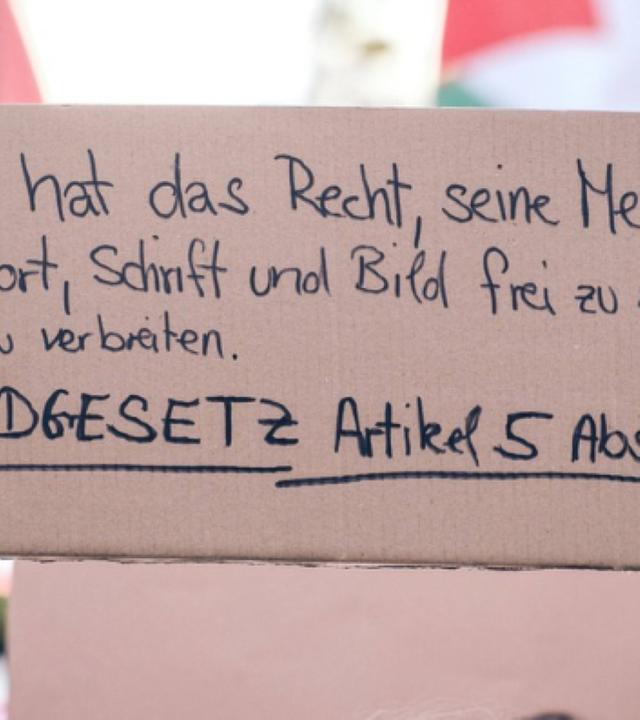 hat das Recht, seine Me
ort, Schrift und Bild frei zu
verbreiten.
DGESETZ Artikel 5 Abs